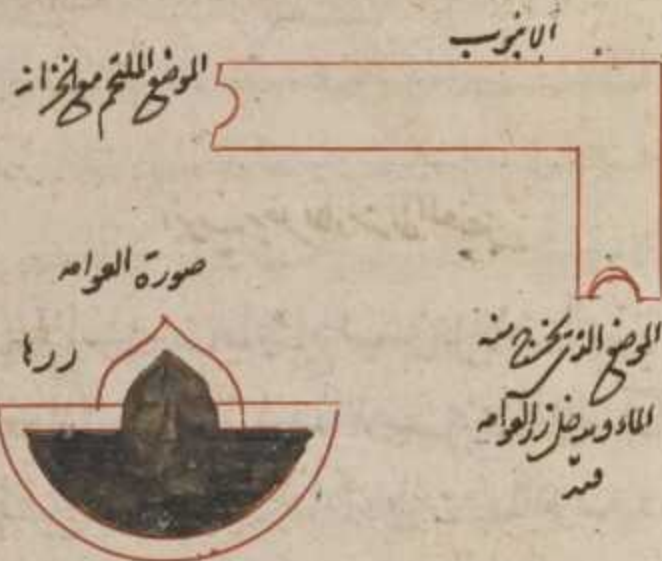 الانبوب
الموضع الملتحم مع الخزانه
صورة العوامه
زرها
الموضع الذى يخرج منه
الماء ويدخل زر العوامه
فيه